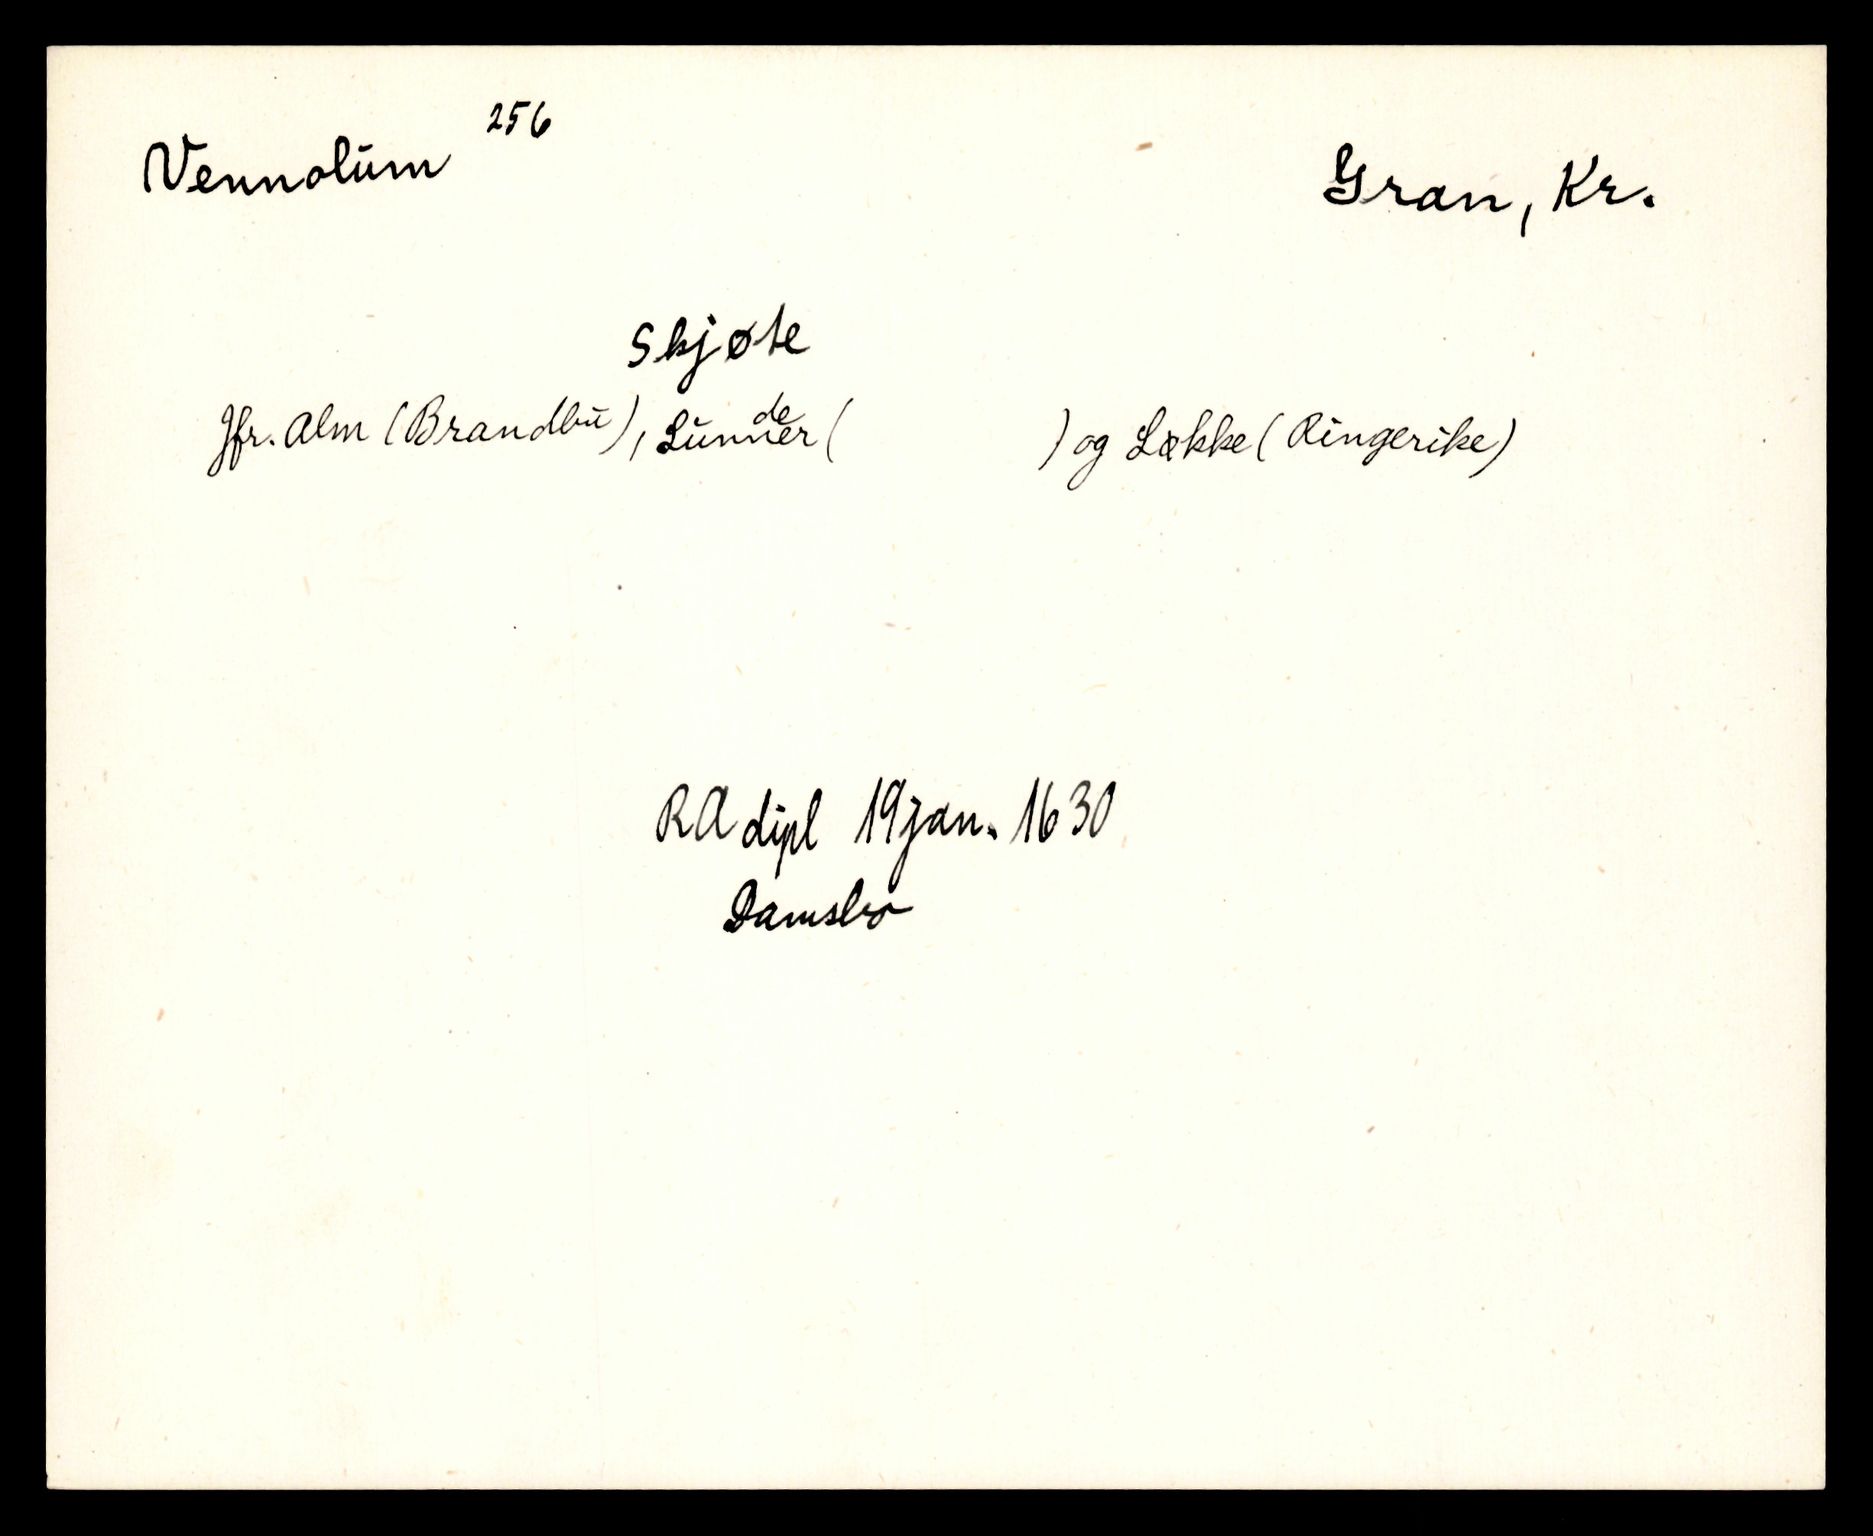 Vennolum 256
Gran, Kr.
Skjøte
Jfr. Alm (Brandbu), Lunner de ( ) og Løkke (Ringerike)
RA dipl 19 jan. 1630
Damsbo